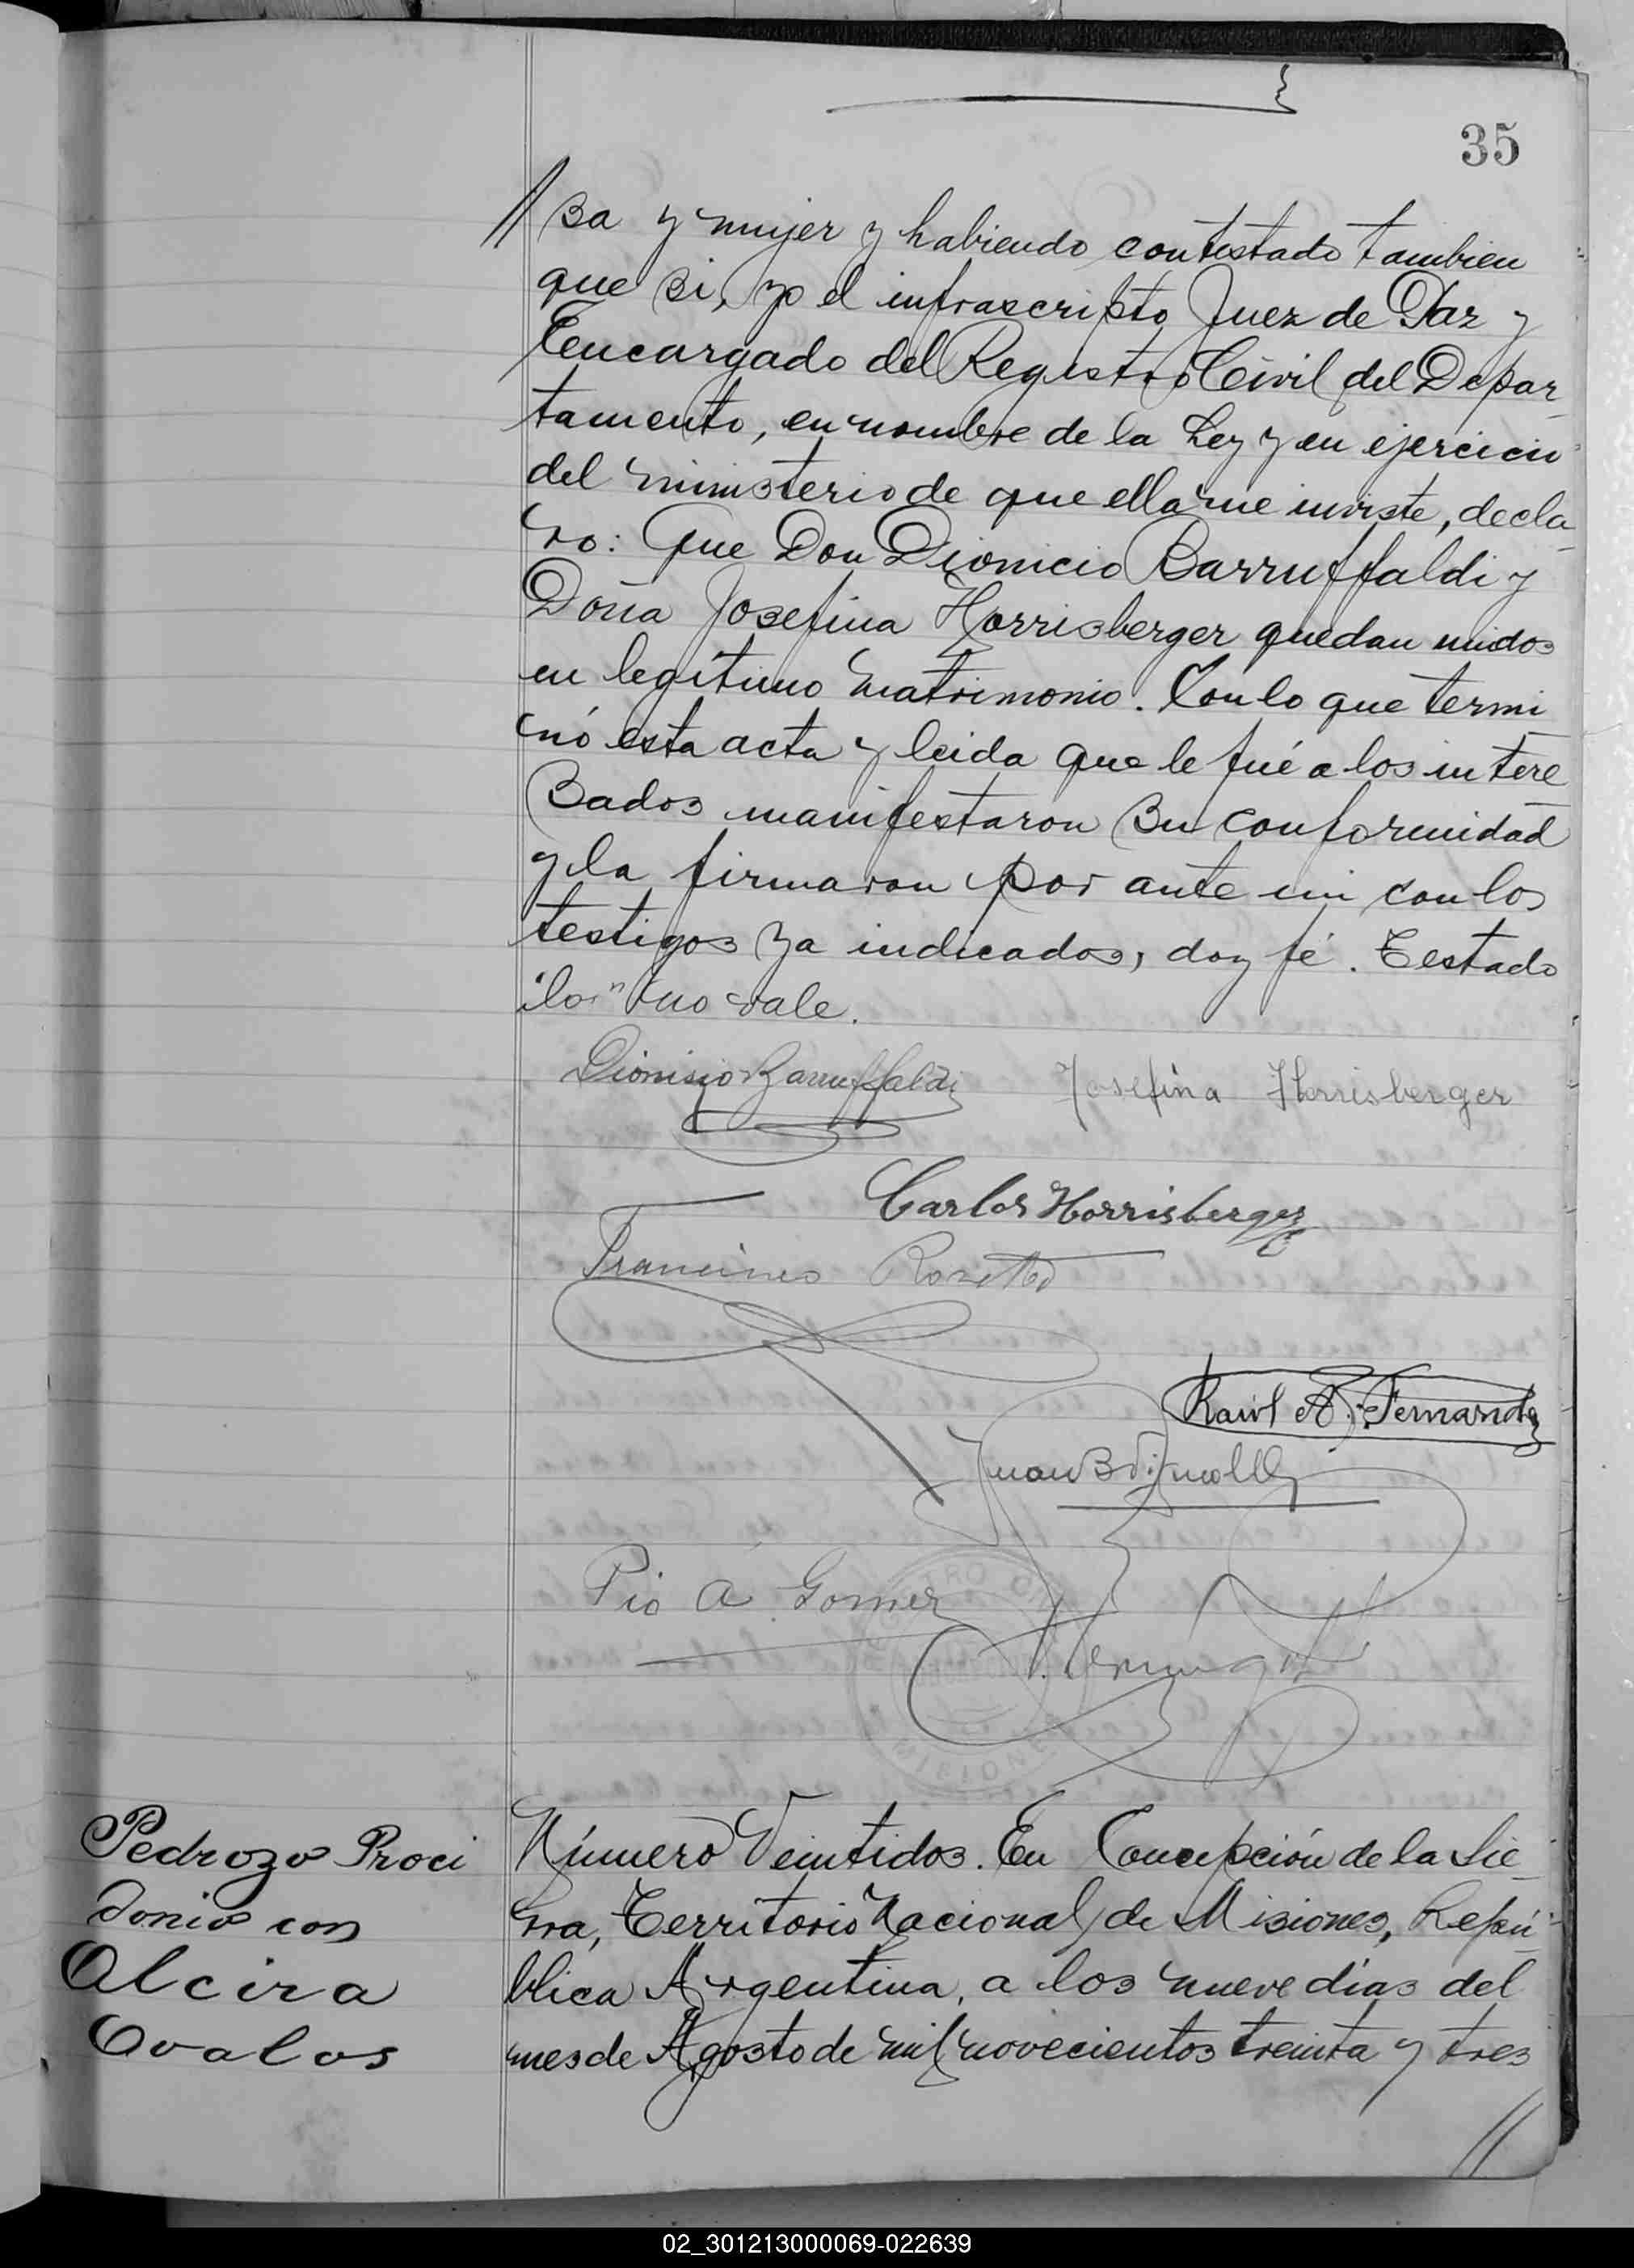 35
// sa y mujer y habiendo contestado tambien
que si, yo el infrascripto Juez de Paz y
Encargado del Registro Civil del Depar-
tamento, en nombre de la Ley y en ejercicio
del ministerio de que ella me inviste, decla-
ro: Que Don Dionicio Barruffaldi y
Doña Josefina Horrisberger quedan unidos
en legítimo matrimonio. Con lo que termi-
nó esta acta y leida que le fué a los intere
sados manifestaron su conformidad
y la firmaron por ante mi con los
testigos ya indicados, doy fé. Testado
"los" no vale.
Dionisio Barruffaldi Josefina Horrisberger
Carlos Horrisberger
Francisco
Raúl A. Fernandez
Juan B
Pio A. Gomez
REGISTRO
MISIONES
Pedrozo Proci
donio con
Alcira
Ovalos
Número Veintidos. En Concepción de la Sie-
rra, Territorio Nacional de Misiones, Repú-
blica Argentina, a los nueve días del
mes de Agosto de mil novecientos treinta y tres
//
02_301213000069-022639